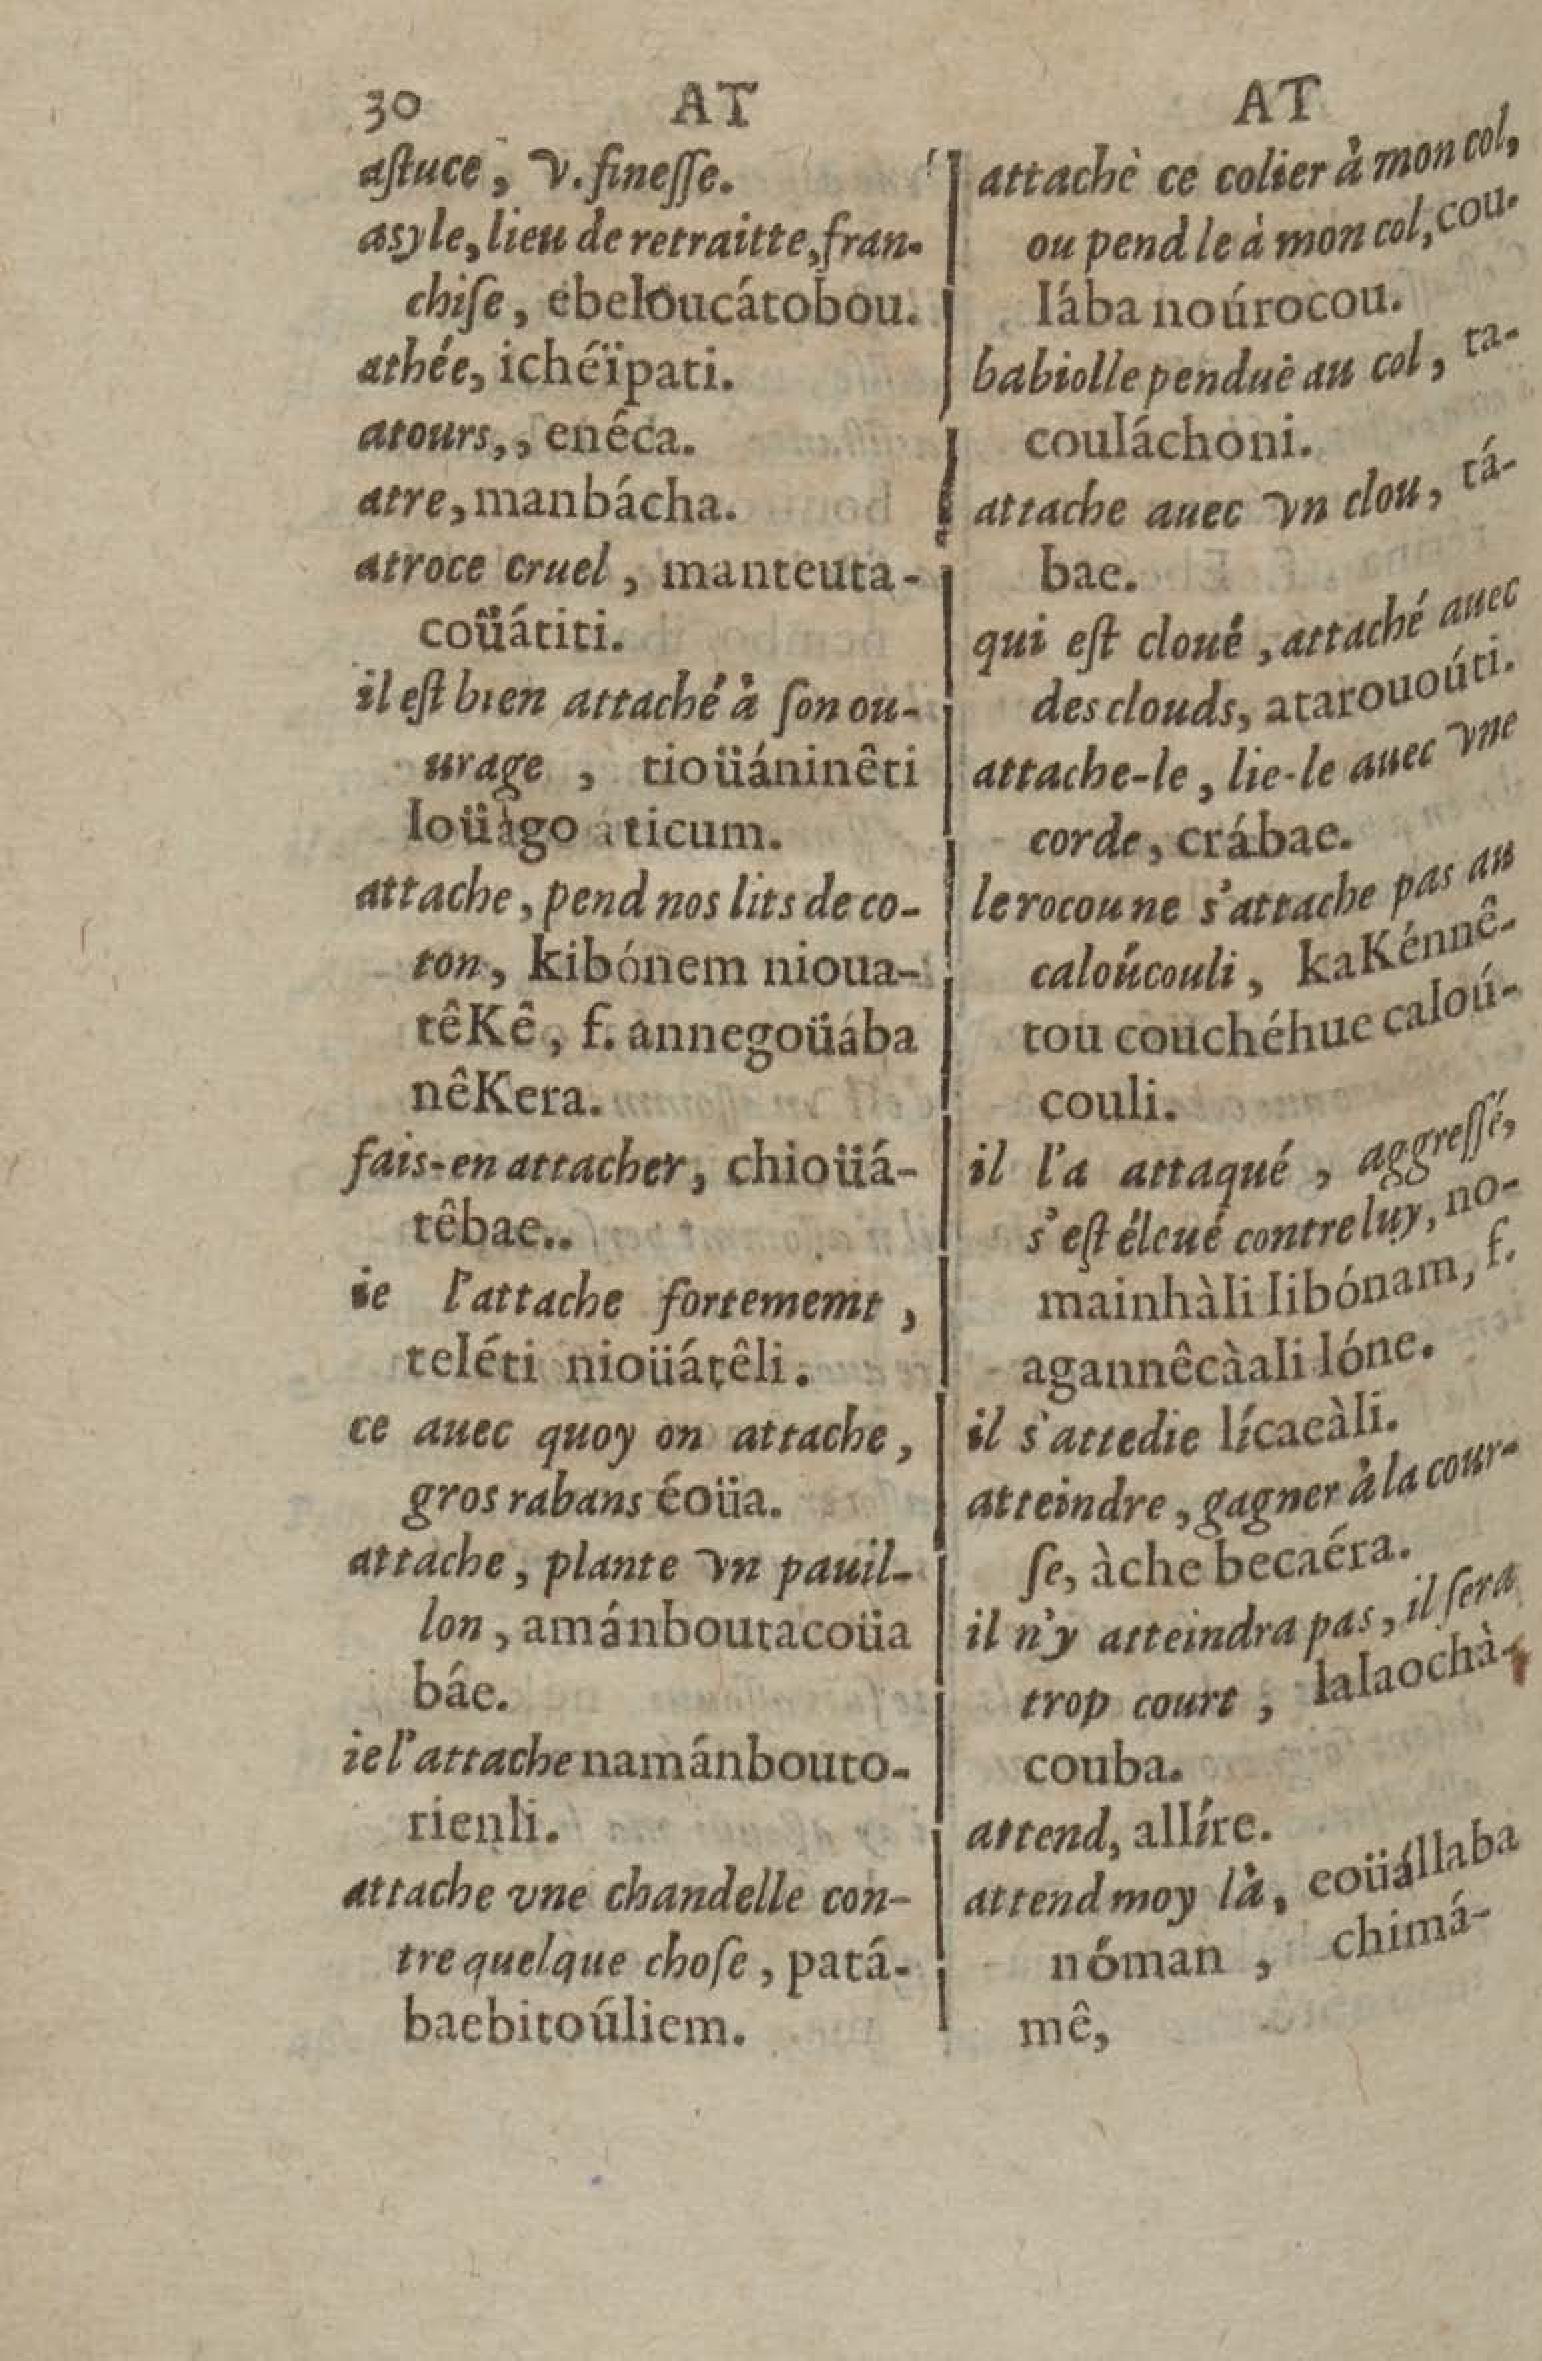 30 AT AT
aſtuce, v. fineſſe.
asyle, lieu de retraitte, fran-
chiſe, ebeloucátobou.
athée, ichéïpati.
atours,, enéca.
atre, manbácha.
atroce cruel, manteuta-
coüátiti.
il eſt bien attaché à ſon ou-
urage, tioüáninêti
loüàgo àticum.
attache, pend nos lits de co-
ton, kibónem nioua-
têKê, f. annegoüába
nêKera.
fais-en attacher, chioüá-
têbae..
ie l'attache fortememt,
teléti nioüátêli.
ce auec quoy on attache,
gros rabans éoüa.
attache, plante vn pauil-
lon, amánboutacoüa
báe.
ie l'attache namánbouto-
rienli.
attache vne chandelle con-
tre quelque choſe, patá-
baebitoúliem.
attachè ce colier à mon col,
ou pend le à mon col, cou-
Iába noúrocou.
babiolle penduë au col, ta-
couláchoni.
attache auec vn clou, tá-
bae.
qui eſt cloué, attaché auec
des clouds, atarououúti.
attache-le, lie-le auec vne
corde, crábae.
le rocou ne s'attache pas au
caloúcouli, kaKénnê-
tou couchéhue caloú-
couli.
il l'a attaqué, aggreſſé,
s'eſt éleué contre luy, no-
mainhàli libónam, f.
agannêcàali lóne.
il s'attedie lícaeàli.
atteindre, gagner à la cour-
ſe, àche becaéra.
il n'y atteindra pas, il ſera
trop court, lalaochà-
couba.
attend, allíre.
attend moy là, eoüállaba
nóman, chimá-
mê,